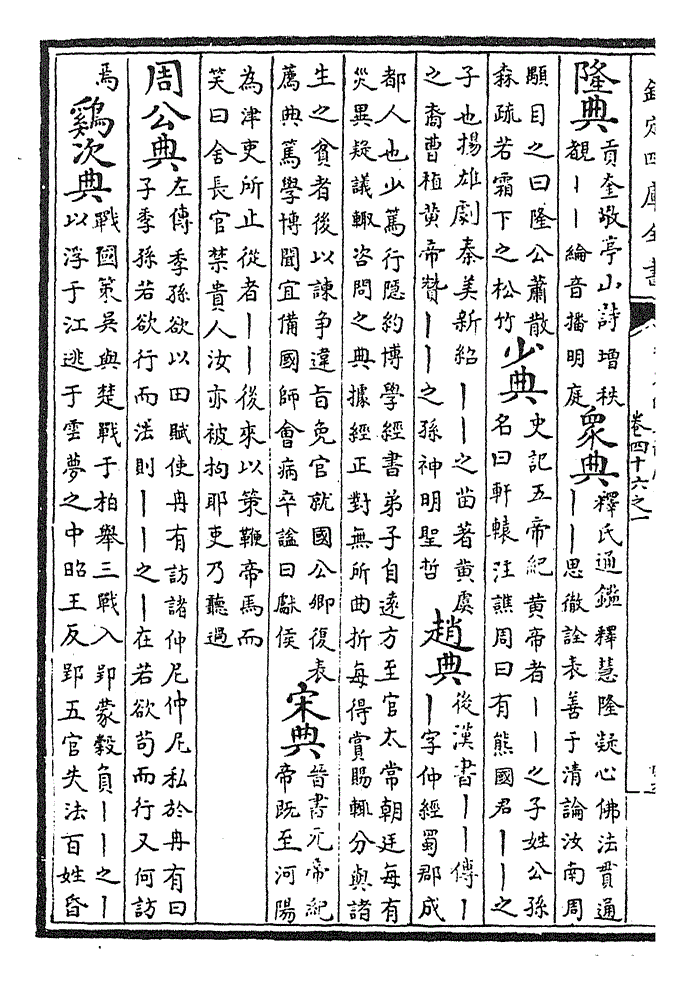 欽定四庫全書
卷四十六之一
隆典 貢奎敬亭山詩增秩
覩丨丨綸音播明庭
衆典 釋氏通鑑釋慧隆凝心佛法貫通
丨丨思徹詮表善于清論汝南周
顒目之曰隆公蕭散
森疏若霜下之松竹
少典 史記五帝紀黄帝者丨丨之子姓公孫
名曰軒轅注譙周曰有熊國君丨丨之
子也揚雄劇秦美新紹丨丨之苗著黄虞
之裔曹植黄帝贊丨丨之孫神明聖哲
趙典 後漢書丨丨傳丨
丨字仲經蜀郡成
都人也少篤行隱約博學經書弟子自遠方至官太常朝廷每有
災異疑議輙咨問之典據經正對無所曲折每得賞賜輙分與諸
生之貧者後以諫爭違旨免官就國公卿復表
薦典篤學博聞宜備國師會病卒謚曰獻侯
宋典 晉書元帝紀
帝既至河陽
為津吏所止從者丨丨後來以策鞭帝馬而
笑曰舍長官禁貴人汝亦被拘耶吏乃聽過
周公典 左傳季孫欲以田賦使冉有訪諸仲尼仲尼私於冉有曰
子季孫若欲行而法則丨丨之丨在若欲苟而行又何訪
焉
鷄次典 戰國策吳與楚戰于柏舉三戰入郢蒙榖負丨丨之丨
以浮于江逃于雲夢之中昭王反郢五官失法百姓昏